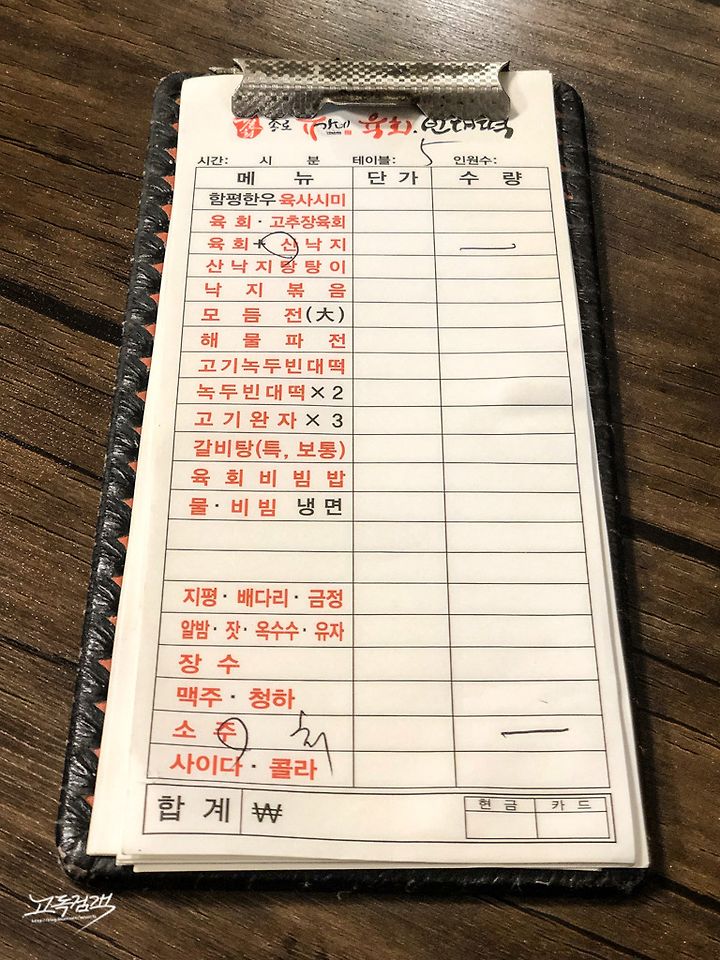 종로 육회.빈대떡
시간: 시 분 테이블: 5 인원수:
메 뉴 단 가 수 량
함평한우육사시미
육 회 · 고추장육회
육 회 + 산 낙 지 一
산 낙 지 탕 탕 이
낙 지 볶 음
모 듬 전 (大)
해 물 파 전
고기녹두빈대떡
녹두빈대떡 × 2
고 기 완 자 × 3
갈비탕(특, 보통)
육 회 비 빔 밥
물 · 비 빔 냉 면
지평 · 배다리 · 금정
알밤 · 잣 · 옥수수 · 유자
장 수
맥주 · 청하
소 주 처 一
사이다 · 콜라
합 계 ₩ 현 금 카 드
고독검객